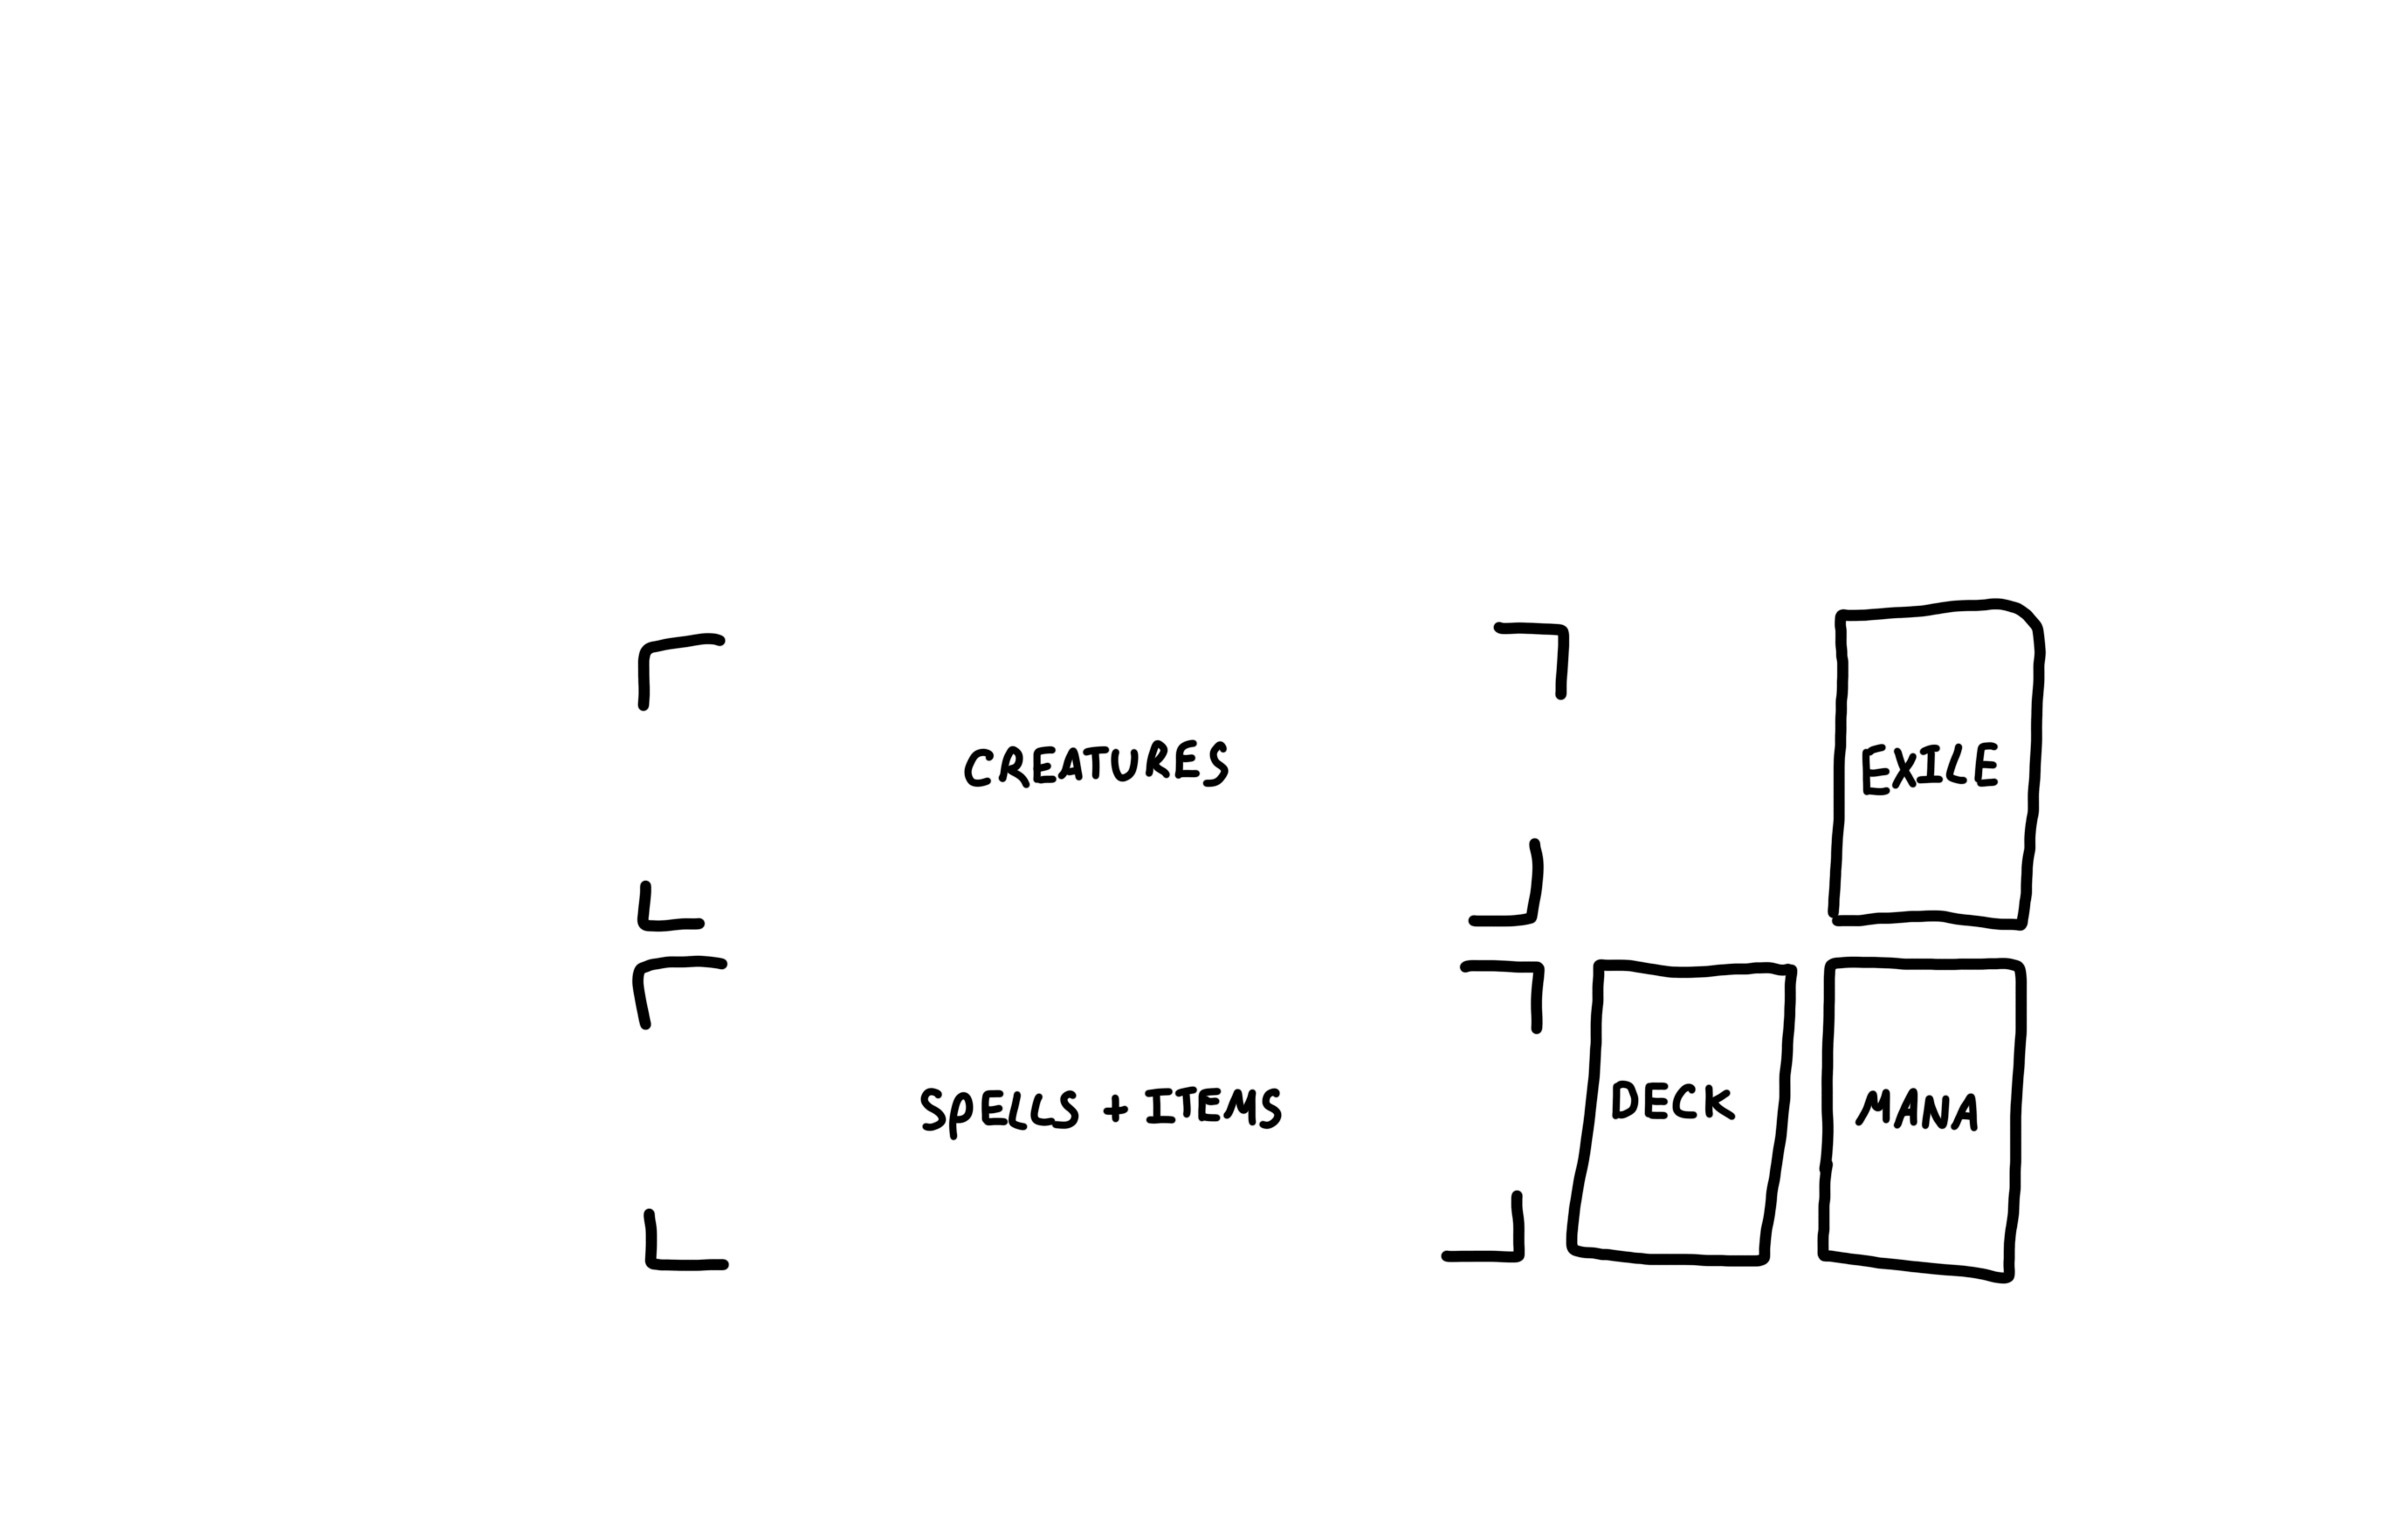 CREATURES
EXILE
SPELLS + ITEMS
DECK
MANA